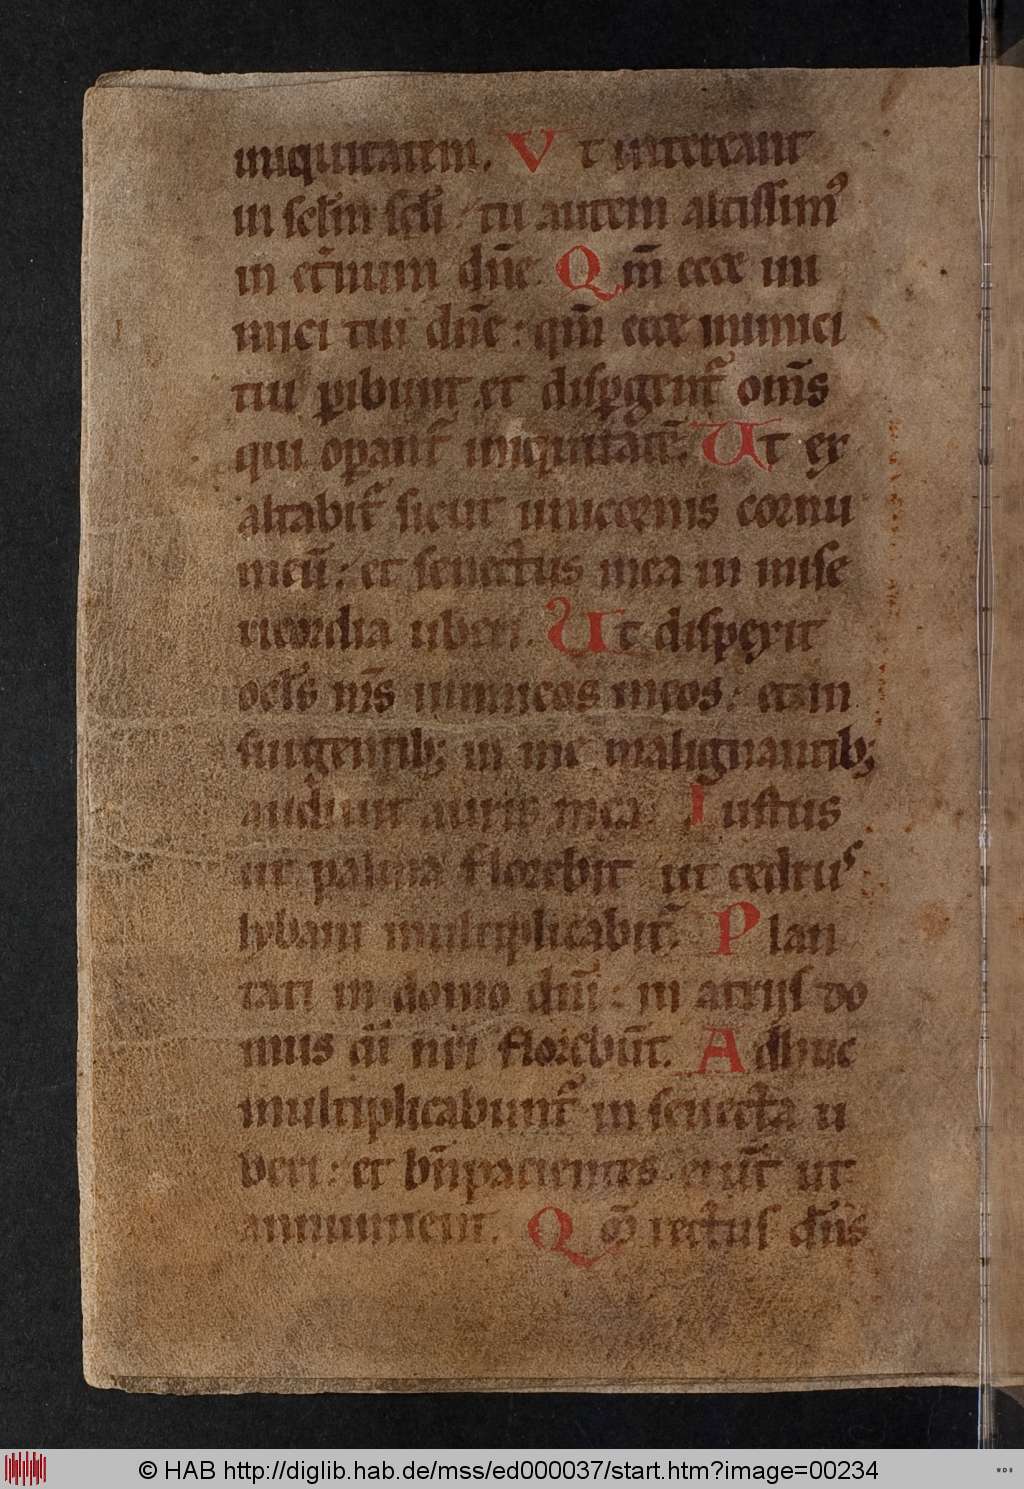 iniquitatem. Vt intereant
in sclm̄ scli: tu autem altissimꝰ
in et̄num dn̄e. Qm̄ ecce ini
mici tui dn̄e: qm̄ ecce inimici
tui ꝑibunt et disꝑgent᷑ om̄s
qui oꝑant᷑ iniquitatē. Ut ex
altabit᷑ sicut unicornis cornu
meū: et senectus mea in mise
ricordia uberi. Ut dispexit
ocl̄s ms̄ inimicos meos: et in
surgentib; in me malignantib;
audiuit auris mea. Iustus
ut palma florebit ut cedrus
lybani multiplicabit᷑. Plan
tati in domo dn̄i: in atriis do
mus di nr̄i florebūt. Adhuc
multiplicabunt᷑ in senecta u
beri: et bn̄ pacientes erūt ut
annuntient. Qm̄ rectus dn̄s
© HAB http://diglib.hab.de/mss/ed000037/start.htm?image=00234